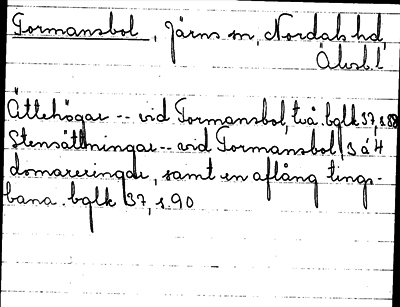 Tormansbol, Järns sn, Nordals hd,
Älvsb. l
Ättehögar -- vid Tormansbol, två. bglk 37, s. 88
Stensättningar -- vid Tormansbol, 3 à 4
domareringar, samt en aflång tings-
bana. bglk 37, s. 90